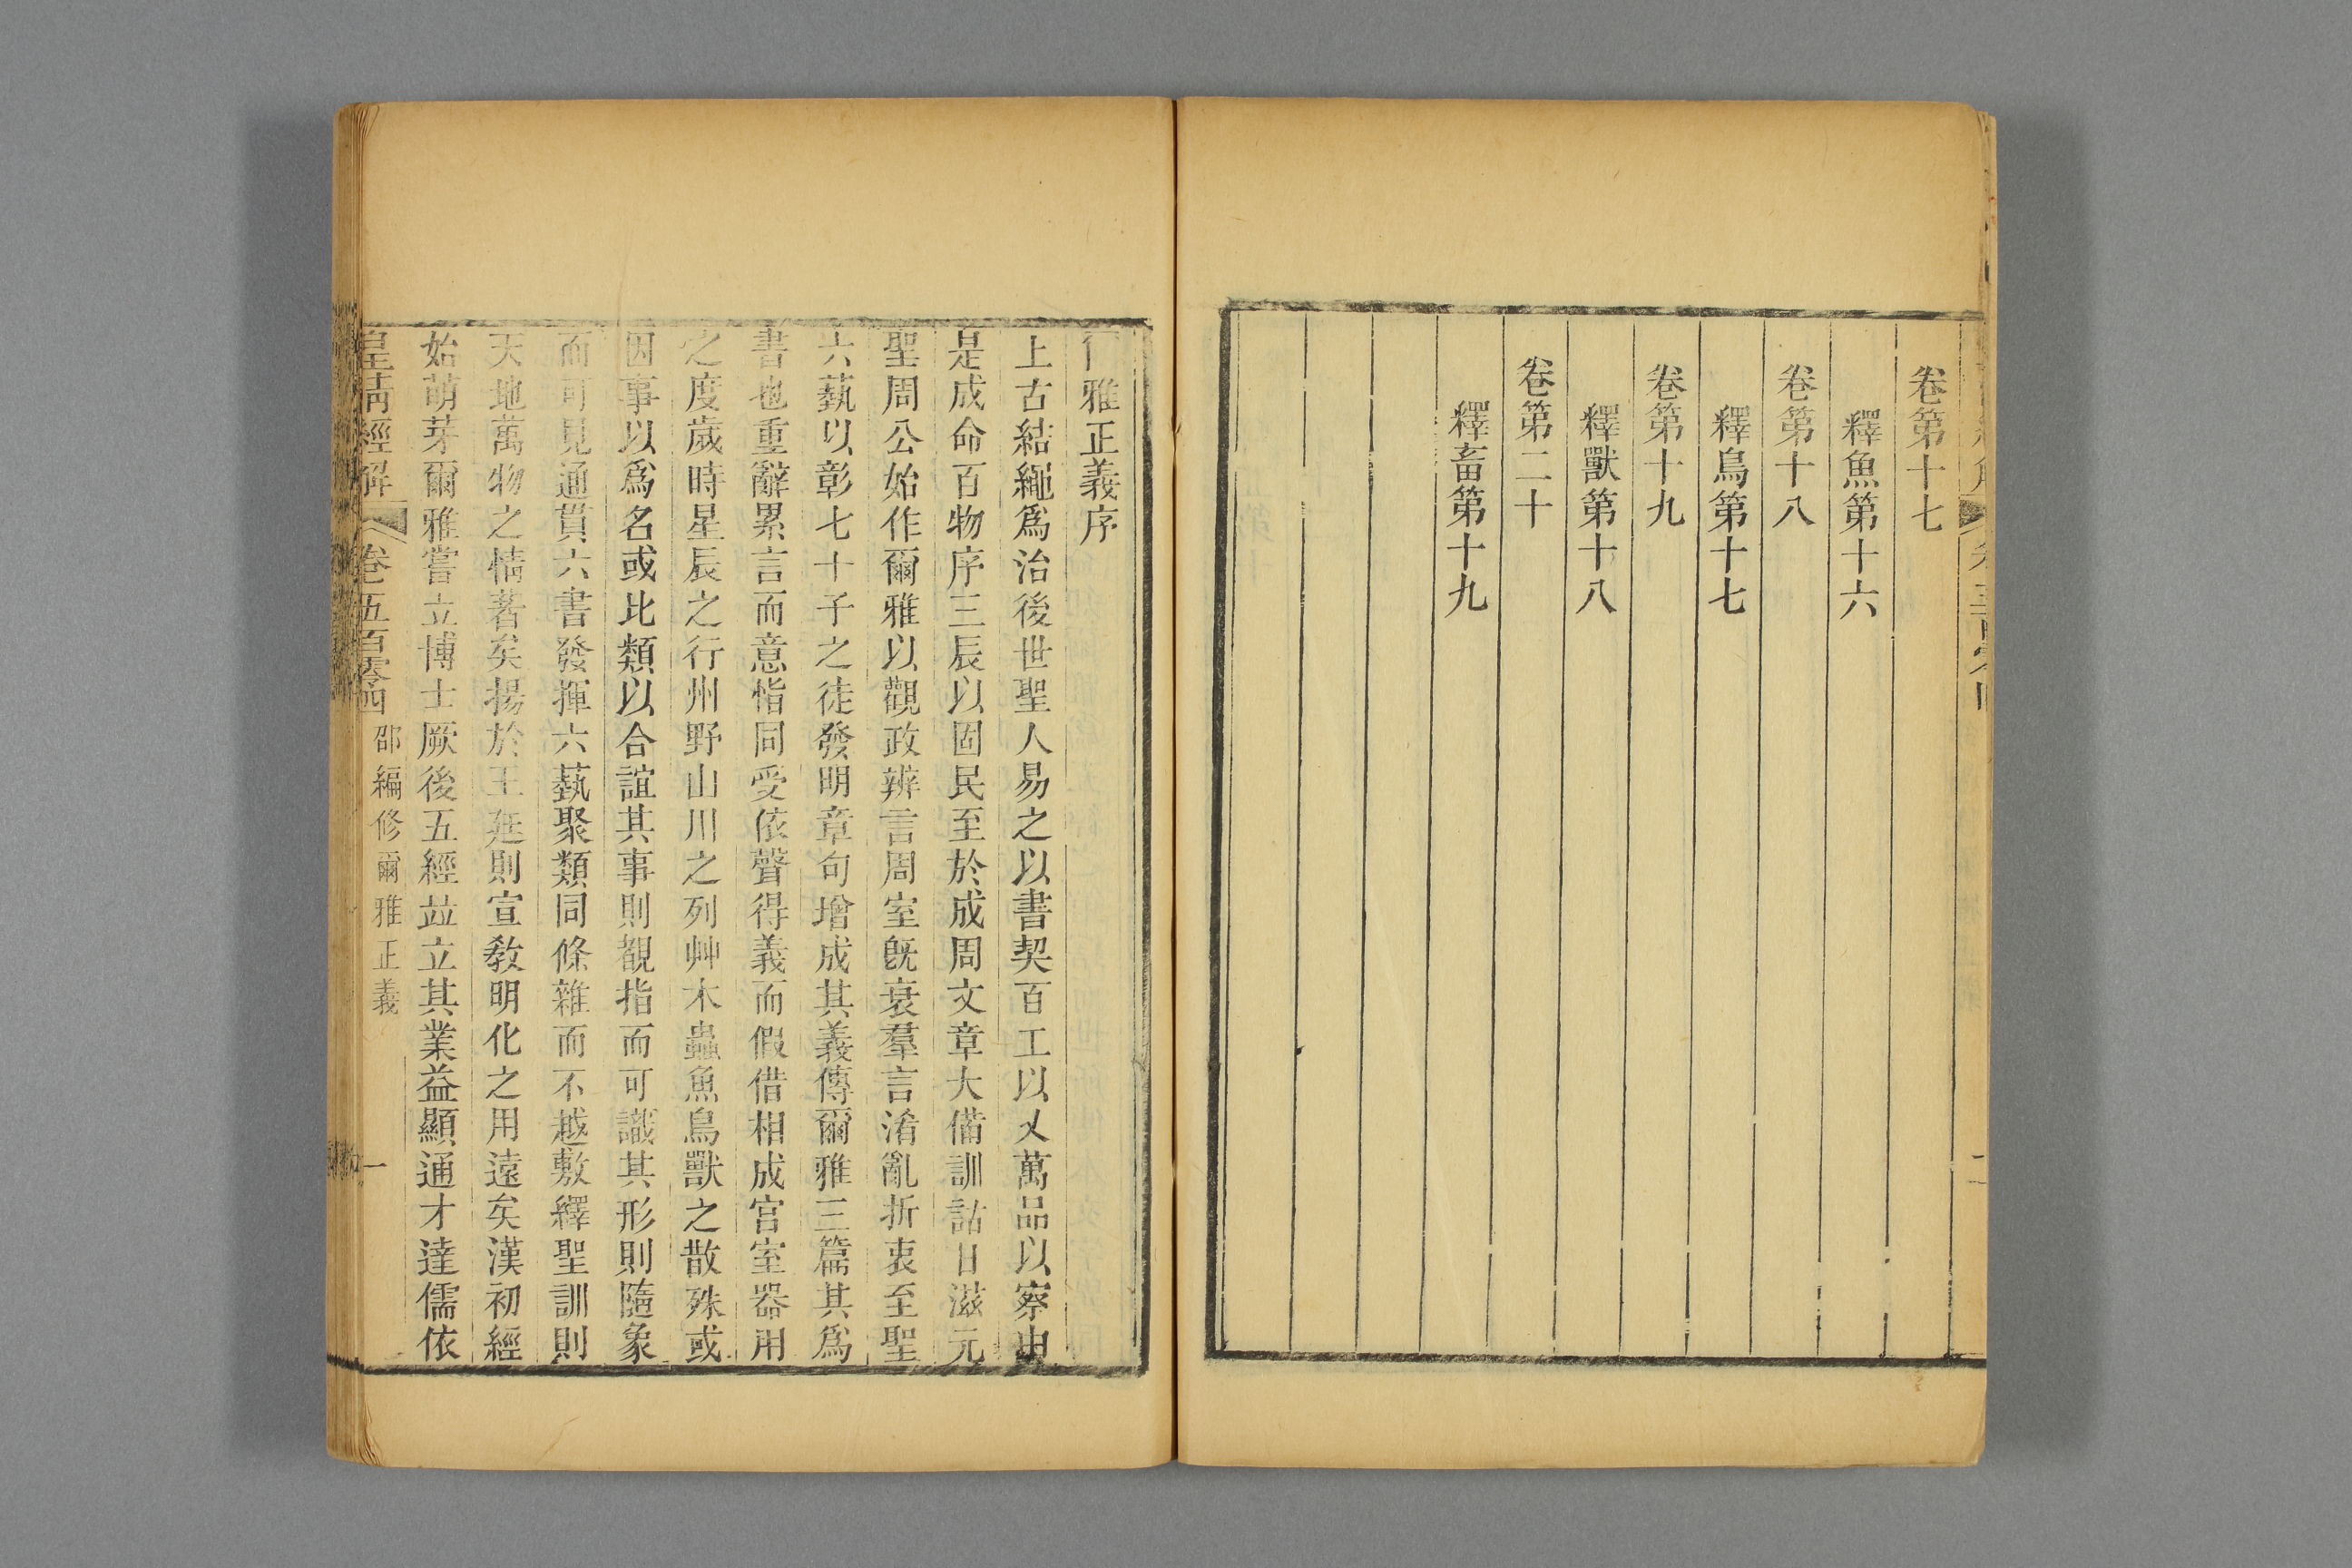 卷第十七
釋魚第十六
卷第十八
釋鳥第十七
卷第十九
釋獸第十八
卷第二十
釋畜第十九
雅正義序
上古結繩爲治後世聖人易之以書契百工以乂萬品以察由
是成命百物序三辰以固民至於成周文章大備訓詁日滋元
聖周公始作爾雅以觀政辨言周室旣衰羣言淆亂折衷至聖
六藝以彰七十子之徒發明章句增成其義傳爾雅三篇其爲
書也重辭累言而意恉同受依聲得義而假借相成宮室器用
之度歲時星辰之行州野山川之列艸木蟲魚鳥獸之散殊或
因事以爲名或比類以合誼其事則覩指而可識其形則隨象
而可見通貫六書發揮六藝聚類同條雜而不越敷繹聖訓則
天地萬物之情著矣揚於王廷則宣敎明化之用遠矣漢初經
始萌芽爾雅嘗立博士厥後五經竝立其業益顯通才達儒依
皇淸經解 卷五百零四 邵編修爾雅正義 一